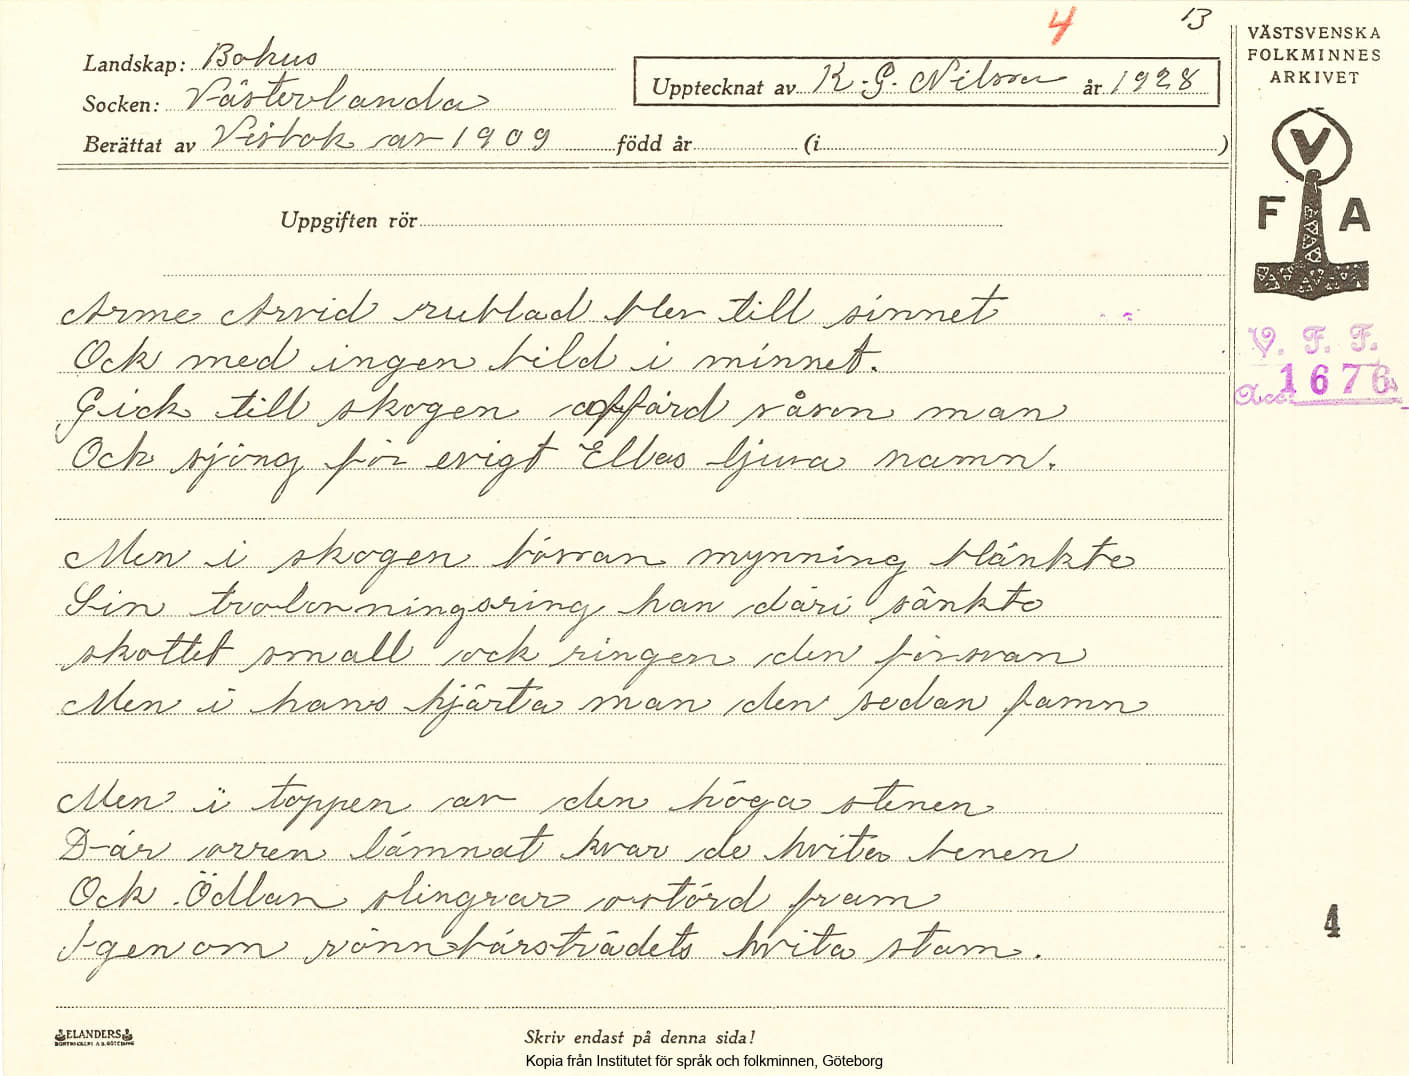 4 B
VÄSTSVENSKA
FOLKMINNES
ARKIVET
Landskap: Bohus
Upptecknat av K. G. Nilson år 1928
Socken: Västerlanda
Berättat av Visbok av 1909 född år (i )
V
F A
Uppgiften rör
Arme Arvid rublad blev till sinnet
Ock med ingen bild i minnet.
V. F. F.
Acc. 1676
Gick till skogen man
Ock sjöng för evigt Ellas ljuva namn.
Men i skogen bössan mynning blänkte
Sin trolovningsring han däri sänkte
skottet small ock ringen den försvan
Men i hans hjärta man den sedan famn
Men i toppen av den höga stenen
Där orren lämnat kvar de hvita benen
Ock Ödlan slingrar ostörd fram
4
Igenom rönnbärsträdets hvita stam.
ELANDERS
Skriv endast på denna sida!
Kopia från Institutet för språk och folkminnen, Göteborg